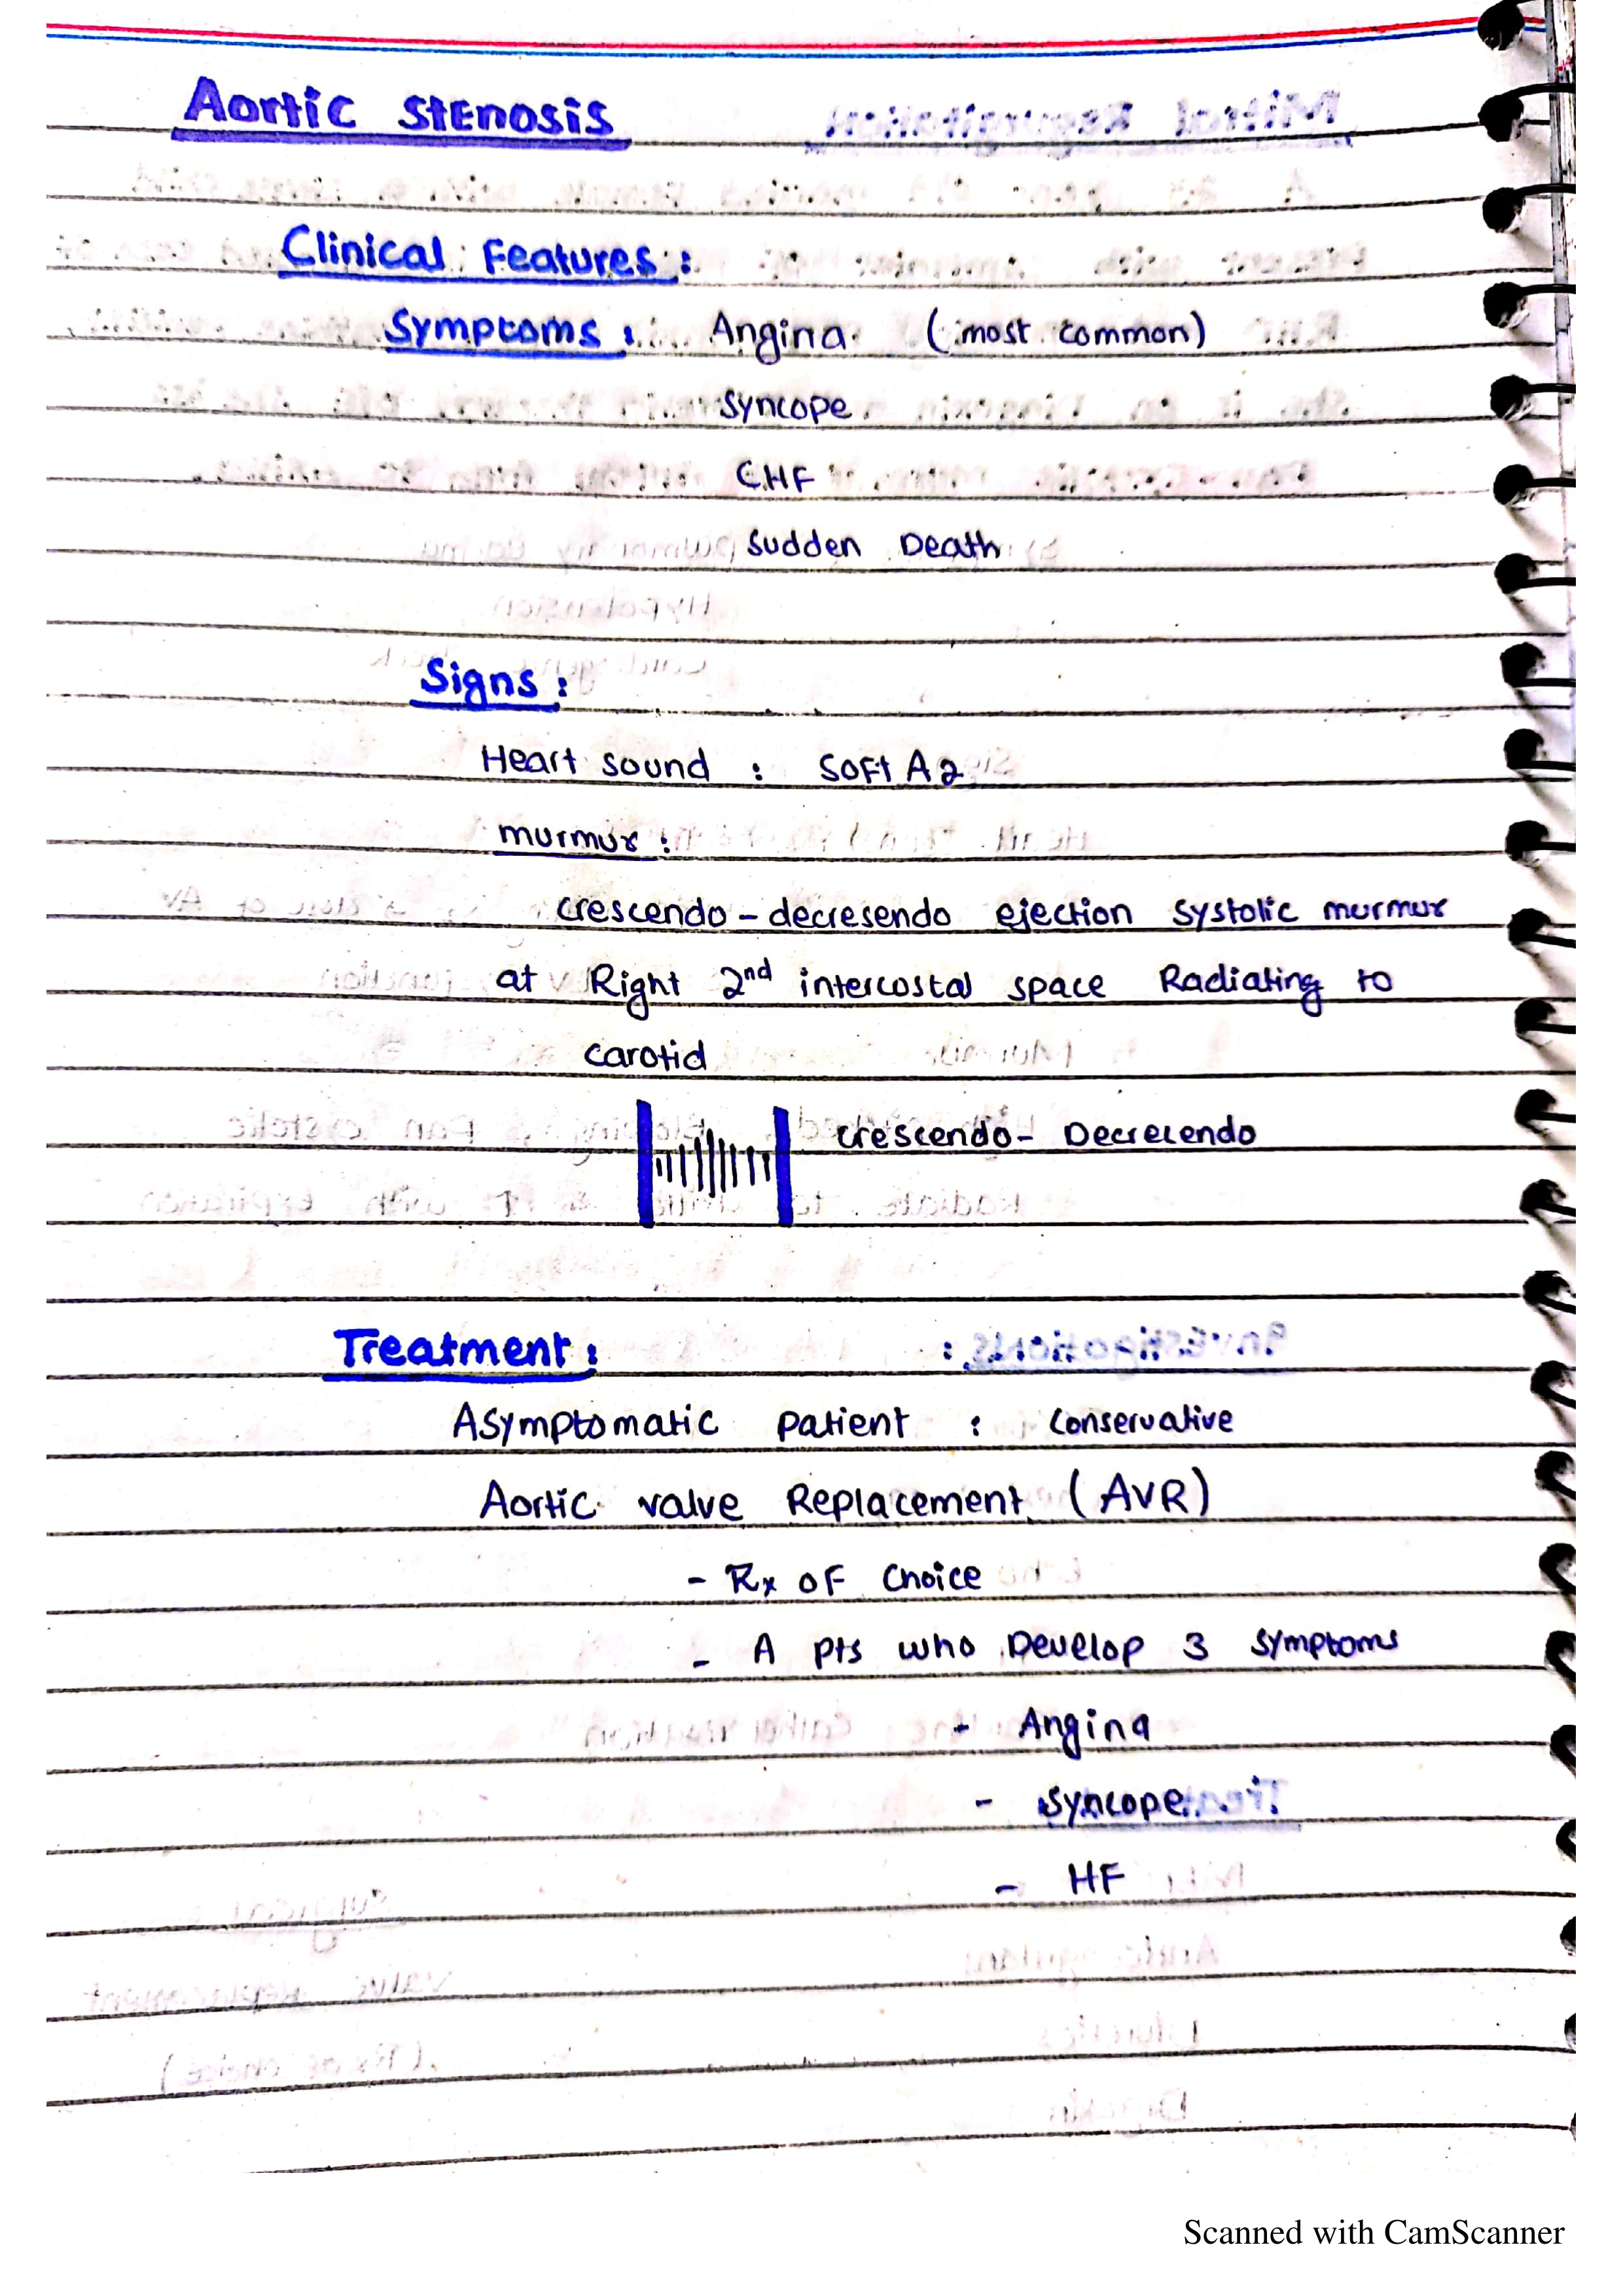 Aortic Stenosis
Clinical Features :
Symptoms : Angina (most common)
Syncope
CHF
Sudden Death
Signs :
Heart sound : Soft A2
murmur :
crescendo - decresendo ejection systolic murmur
at Right 2nd intercostal space Radiating to
carotid
crescendo - Decrecendo
Treatment :
Asymptomatic patient : conservative
Aortic valve Replacement (AVR)
- Rx of choice
- A pts who Develop 3 symptoms
- Angina
- Syncope
- HF
Scanned with CamScanner